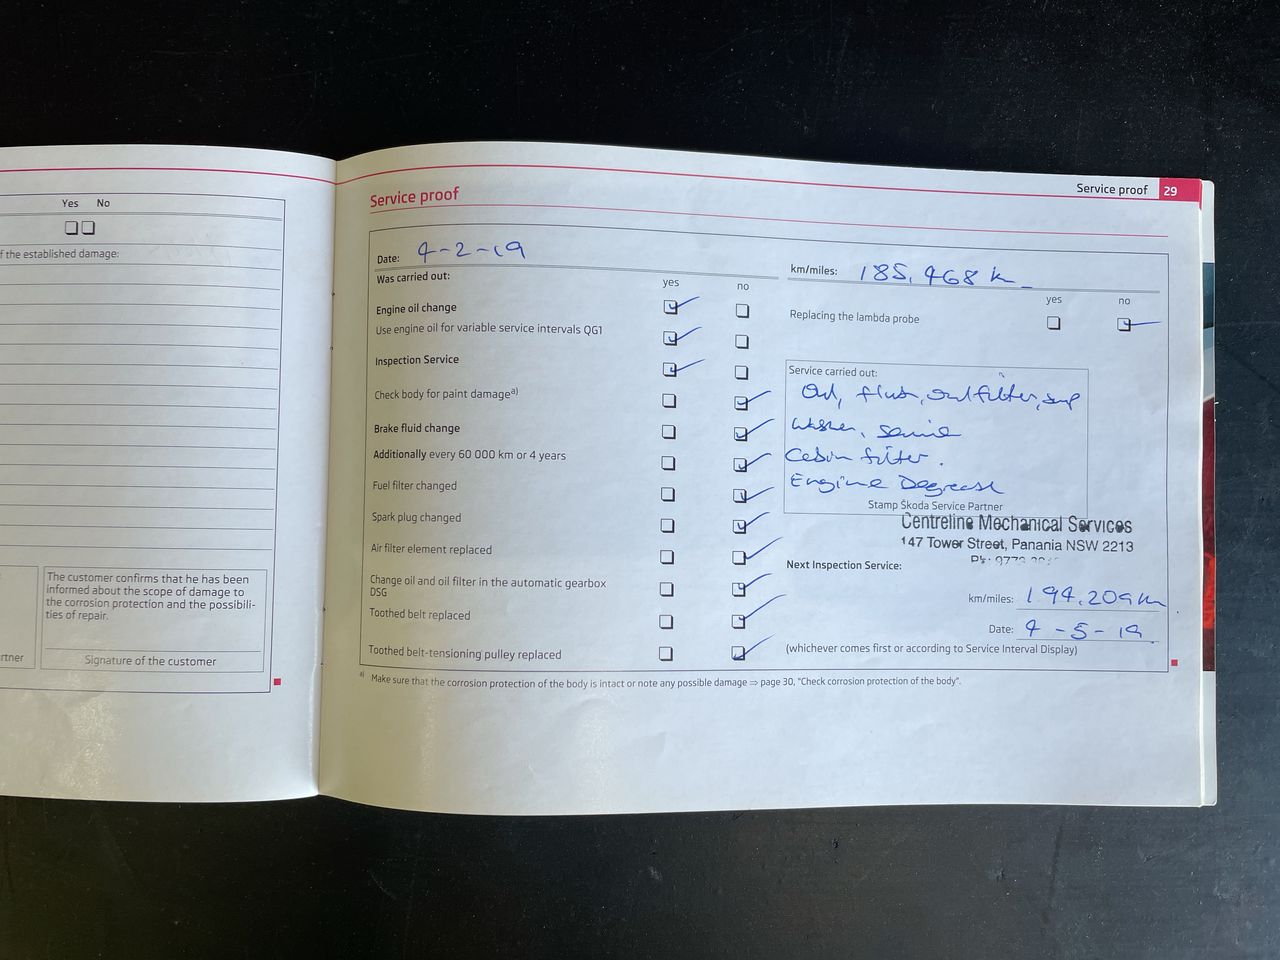 Yes No
f the established damage:
The customer confirms that he has been
informed about the scope of damage to
the corrosion protection and the possibili-
ties of repair.
rtner
Signature of the customer
Service proof 29
Service proof
Date: 4-2-19
km/miles: 185,468 k
Was carried out:
yes no
yes no
Engine oil change
Use engine oil for variable service intervals QG1
Inspection Service
Check body for paint damage a)
Brake fluid change
Additionally every 60 000 km or 4 years
Fuel filter changed
Spark plug changed
Air filter element replaced
Change oil and oil filter in the automatic gearbox
DSG
Toothed belt replaced
Toothed belt-tensioning pulley replaced
Replacing the lambda probe
Service carried out:
Oil, flush, oil filter, sump
washer,
Cabin filter.
Engine Degrease
Stamp Škoda Service Partner
Centreline Mechanical Services
147 Tower Street, Panania NSW 2213
Next Inspection Service:
km/miles: 194,209 km
Date: 4-5-19
(whichever comes first or according to Service Interval Display)
a) Make sure that the corrosion protection of the body is intact or note any possible damage ⇒ page 30, "Check corrosion protection of the body".